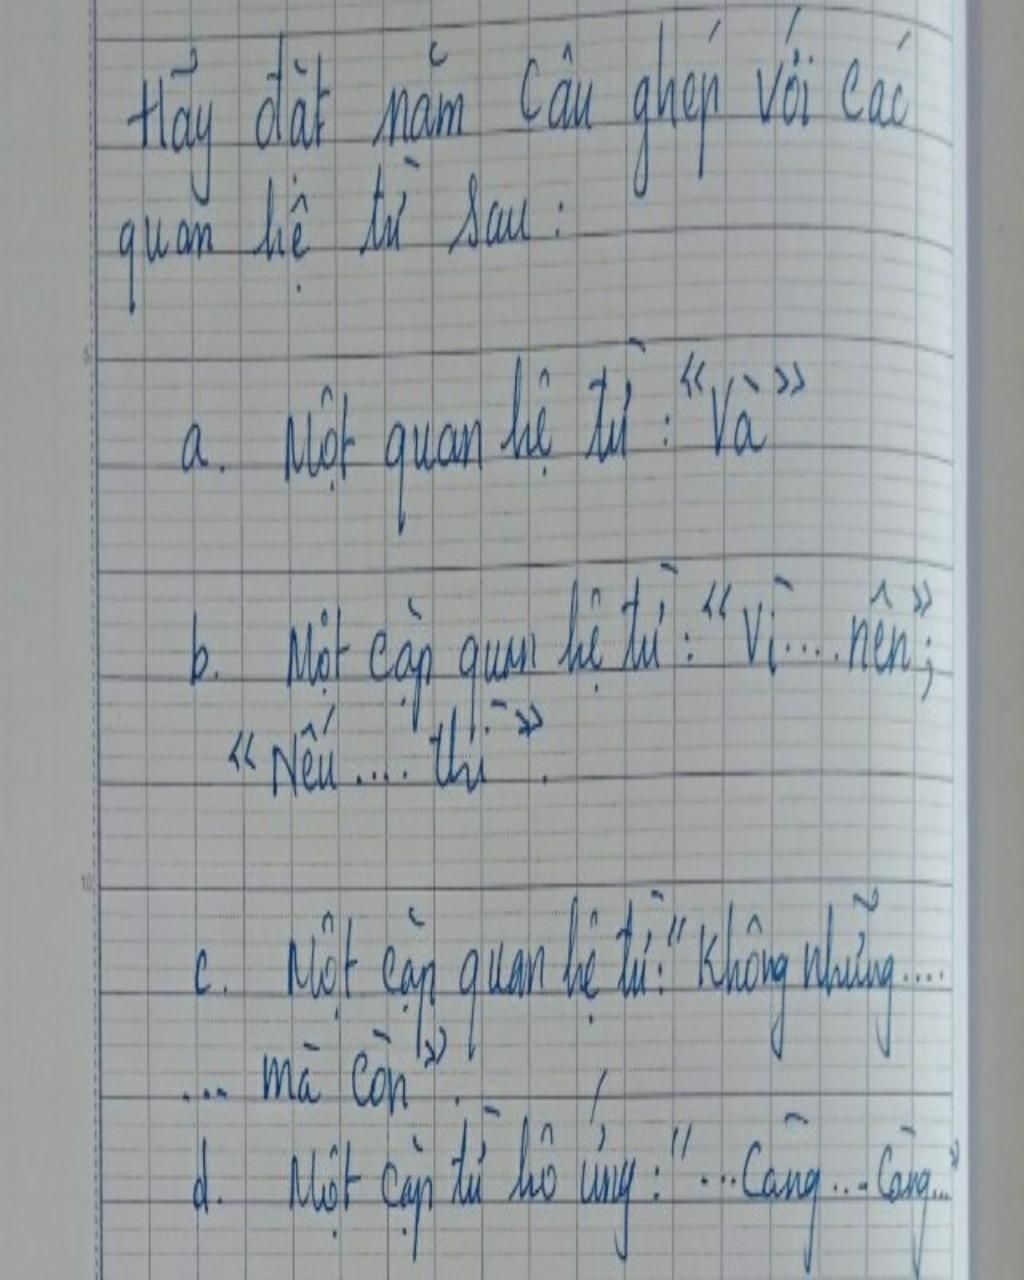 Hãy đặt năm câu ghép với các
quan hệ từ sau :
a. Một quan hệ từ : "Và"
b. Một cặp quan hệ từ : "Vì .... nên";
"Nếu .... thì".
c. Một cặp quan hệ từ: "Không những ....
... mà còn".
d. Một cặp từ hô ứng : "... Càng ... Càng..."